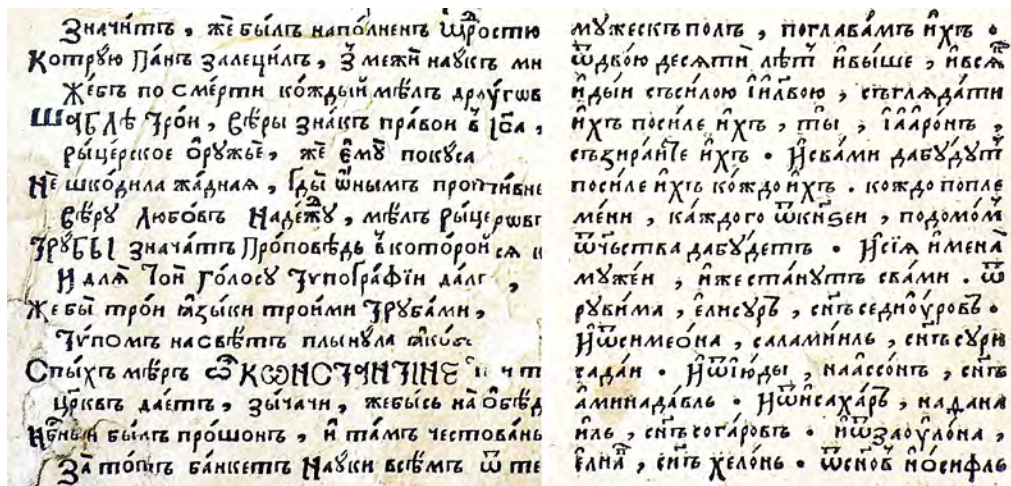 Значи́тъ, жѐ бы́лъ напо́лненъ Щѝростю
Котрꙋ́ю Па́нъ Залеци́лъ, З̾ межѝ наꙋ́къ мн
Же́бъ по сме́рти ко́ждый мѣ́лъ дрꙋ́гѡв
Ша́блѣ Тро́н, Вѣ́ры зна́къ пра́вои в̾
ры́церское о̂рꙋ́жъѐ, жѐ е̂мꙋ̀ покꙋса
Нѐ шко́дила жа́дная, Гды̀ проти́вне
Вѣ́рꙋ Любо́въ Наде́жꙋ, мѣ́лъ ры́церѡвъ
Трꙋбы знача́тъ Про́повѣдь в̾ кото́рой ся
И для̀ То́и Го́лосꙋ Тѵпогра́фїи да́лъ,
Же бы̀ тро́и ꙗ̂зы́ки трои́ми Трꙋба́ми,
Тѵпомъ на свѣ́тъ плы́нꙋла
Спы́хъ мѣ́ръ ѿ КѠНСТАНТІНЕ
цр҃квъ дае́тъ, Зы́чачи, жебы́сь на̀ О̂бѣ́д
бы́лъ про́шонъ, и̂ та́мъ честова́нь
За то́тъ ба́нкетъ Наꙋ́ки всѣ́мъ ѿ те
мꙋ́жескъ по́лъ, поглава́мъ и̂хъ.
ѿ двою̀ десятѝ лѣ́тъ и̂вы́ше, и̂вся́
и̂ды́и съси́лою і̂и҃лвою, съгляда́ти
и̂хъ поси́ле и̂хъ, ты̀, і̂а̂аро́нъ,
съзира́йте и̂хъ. И̂сва́ми дабꙋ́дꙋтъ
поси́ле и̂хъ ко́ждо и̂хъ. кождо попле
ме́ни, ка́ждого ѿ кн҃ѕеи, подомо́м
ѿчьства дабꙋ́детъ. И̂сїѧ̀ и̂мена̀
мꙋже́и, и̂же ста́нꙋтъ сва́ми. ѿ
рꙋви́ма, е̂лисꙋ́ръ, сн҃ъ седиоу́ровъ.
И̂ѿ симео́на, салами́иль, сн҃ъ сꙋри
сада́и. И̂ѿ і̂ю́ды, наассо́нъ, сн҃ъ
а̂минада́вль. И̂ѿ и̂саха́ръ, надана
иль, сн҃ъ сога́ровъ. и̂ѿ заоуло́на,
е̂лиа̀в, сн҃ъ хело́нь. ѿ сно́въ и̂о́сифль